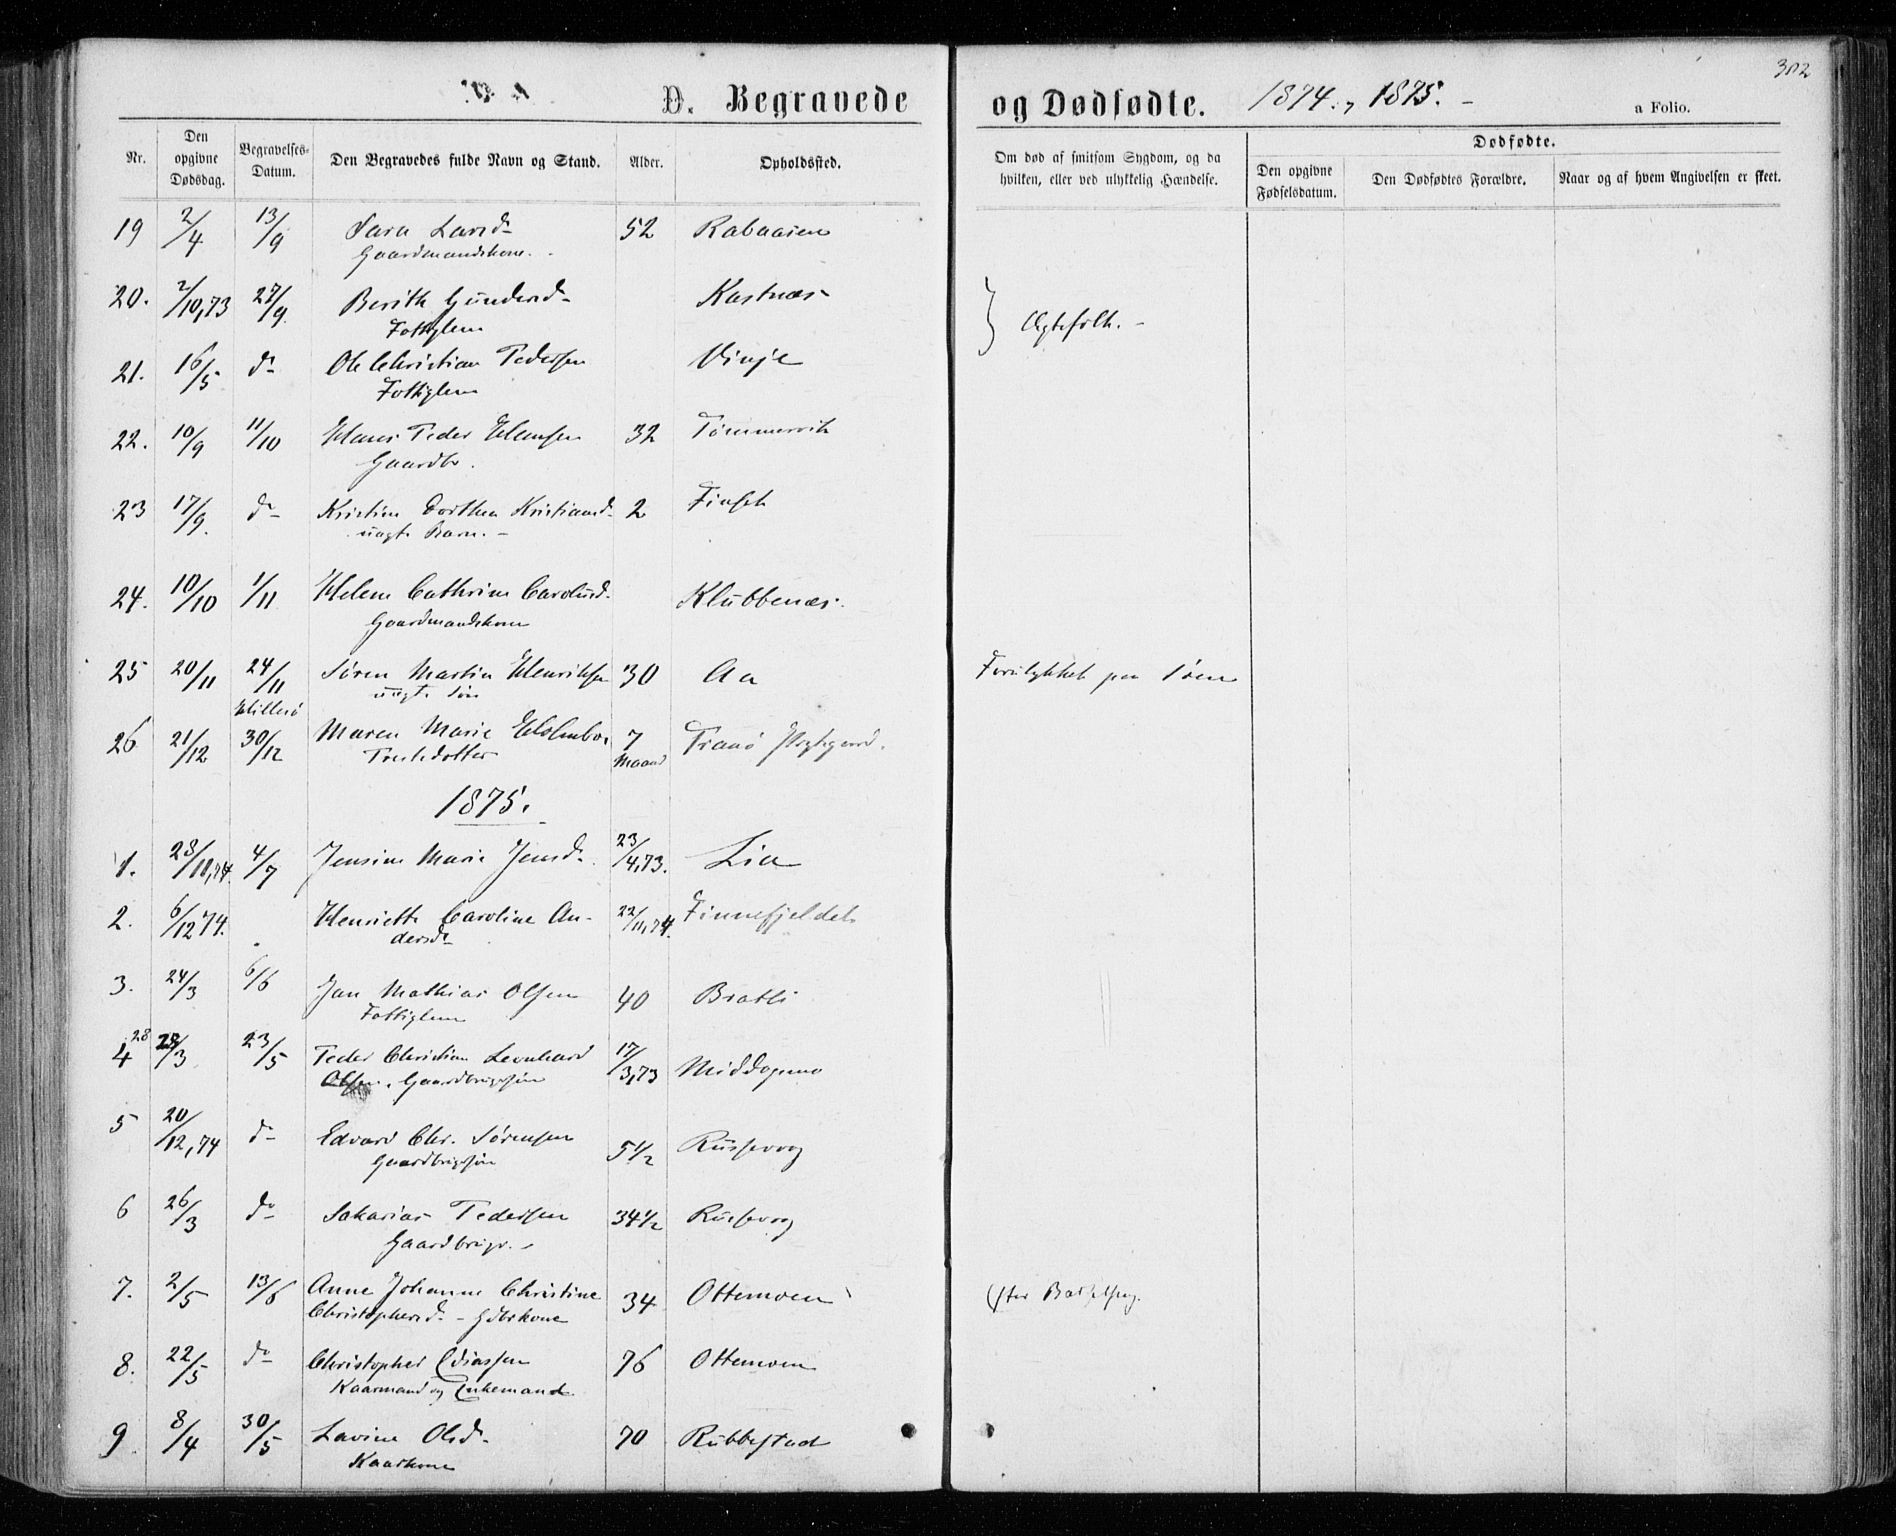 302
D. Begravede og Dødfødte. 1874., 1875. -
a Folio.
Nr.
Den opgivne Dødsdag.
Begravelses-Datum.
Den Begravedes fulde Navn og Stand.
Alder.
Opholdssted.
Om død af smitsom Sygdom, og da hvilken, eller ved ulykkelig Hændelse.
Dødfødte.
Den opgivne Fødselsdatum.
Den Dødfødtes Forældre.
Naar og af hvem Angivelsen er skeet.
19 2/4 13/9 Sara Larsd- 52 Rabaasen
Gaardmandskone.
20. 2/10,73 27/9 Berith Gundersd- Kastnæs
Fattiglem
Ægtefolk. -
21. 16/5 do Ole Christian Pedersen Vinje
Fattiglem
22. 10/9 11/10 Hans Peder Hansen 32 Tømmervik
Gaardbr.
23 17/9. do Kristine Dorthea Kristiansd- 2 Finset
uægte Barn. -
24. 10/10 1/11 Helene Cathrine Carolusd- Klubbenæs.
Gaardmandskone
25 20/11 24/11 Søren Martin Henriksen 30 Aa Forulykket paa Søen
uægte Søn
Hillesö
26 21/12 30/12 Maren Marie Holmboe 7 Maaned Tranö Prestgaard.
Prestedotter
1875.
1. 28/11,74. 4/7 Jensine Marie Jensd-. 23/4,73. Lia
2. 6/12 74. Henriette Caroline An- 22/11,74. Finnefjeldet
dersd-
3. 24/3 6/6 Jan Mathias Olsen 40 Bratli
Fattiglem
4 28 28/3 23/5 Peder Christian Leonhard 17/3,73 Middagsnes
Olsen. Gaardbrugersøn
5 20/12,74 do Edvard Chr. Sørensen 5 1/2 Russevaag
Gaardbrugersøn
6 26/3 do Sakarias Pedersen 34 1/2 Russevaag
Gaardbruger. -
7. 2/5 13/6 Anne Johanne Christine 34 Ottemoen Efter Barselseng.
Christophersd- - Gdbrkone
8. 22/5 do Christopher Eliassen 76 Ottemoen
Kaarmand og Enkemand
9. 8/4 30/5 Lavine Olsd-. 70 Rubbestad
Kaarkone